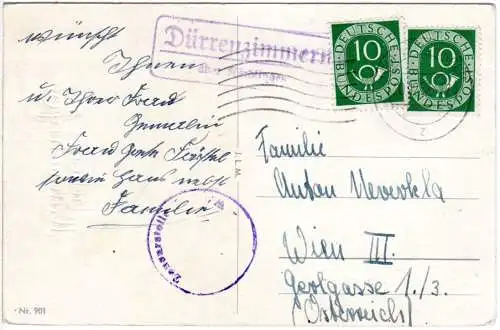 wünscht
Ihnen
u. Ihrer Frau
Gemahlin
Frau
sowie Haus nebst
Familie
Dürrenzimmern
über Nördlingen
10
DEUTSCHE
BUNDESPOST
10
DEUTSCHE
BUNDESPOST
Familie
Anton
Wien III.
Gerlgasse 1./3.
(Österreich)
J. L. M.
Zensurstelle
Nr. 901